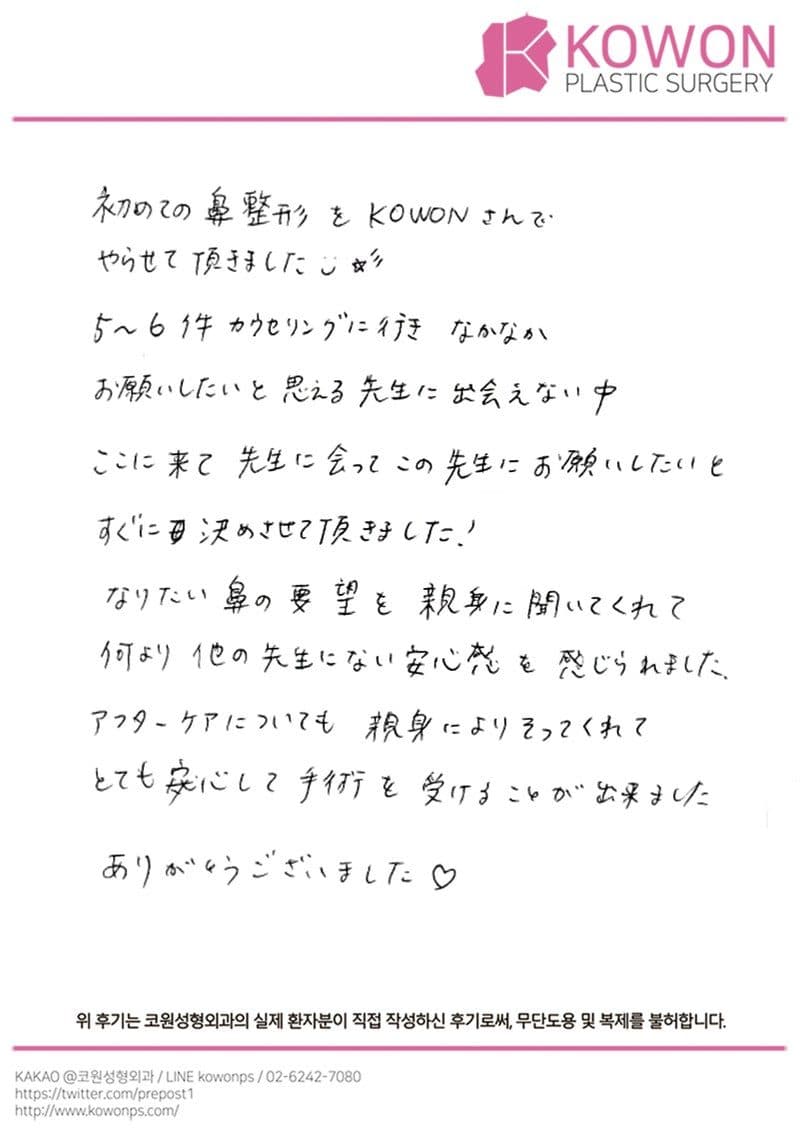 KOWON
PLASTIC SURGERY
初めての鼻整形を KOWONさんで
やらせて頂きました
5〜6件カウセリングに行き なかなか
お願いしたいと思える先生に出会えない中
ここに来て 先生に会って この先生にお願いしたいと
すぐに決めさせて頂きました!
なりたい鼻の要望を親身に聞いてくれて
何より他の先生にない安心感を感じられました.
アフターケアについても 親身によりそってくれて
とても安心して手術を受けることが出来ました
ありがとうございました♡
위 후기는 코원성형외과의 실제 환자분이 직접 작성하신 후기로써, 무단도용 및 복제를 불허합니다.
KAKAO @코원성형외과 / LINE kowonps / 02-6242-7080
https://twitter.com/prepost1
http://www.kowonps.com/